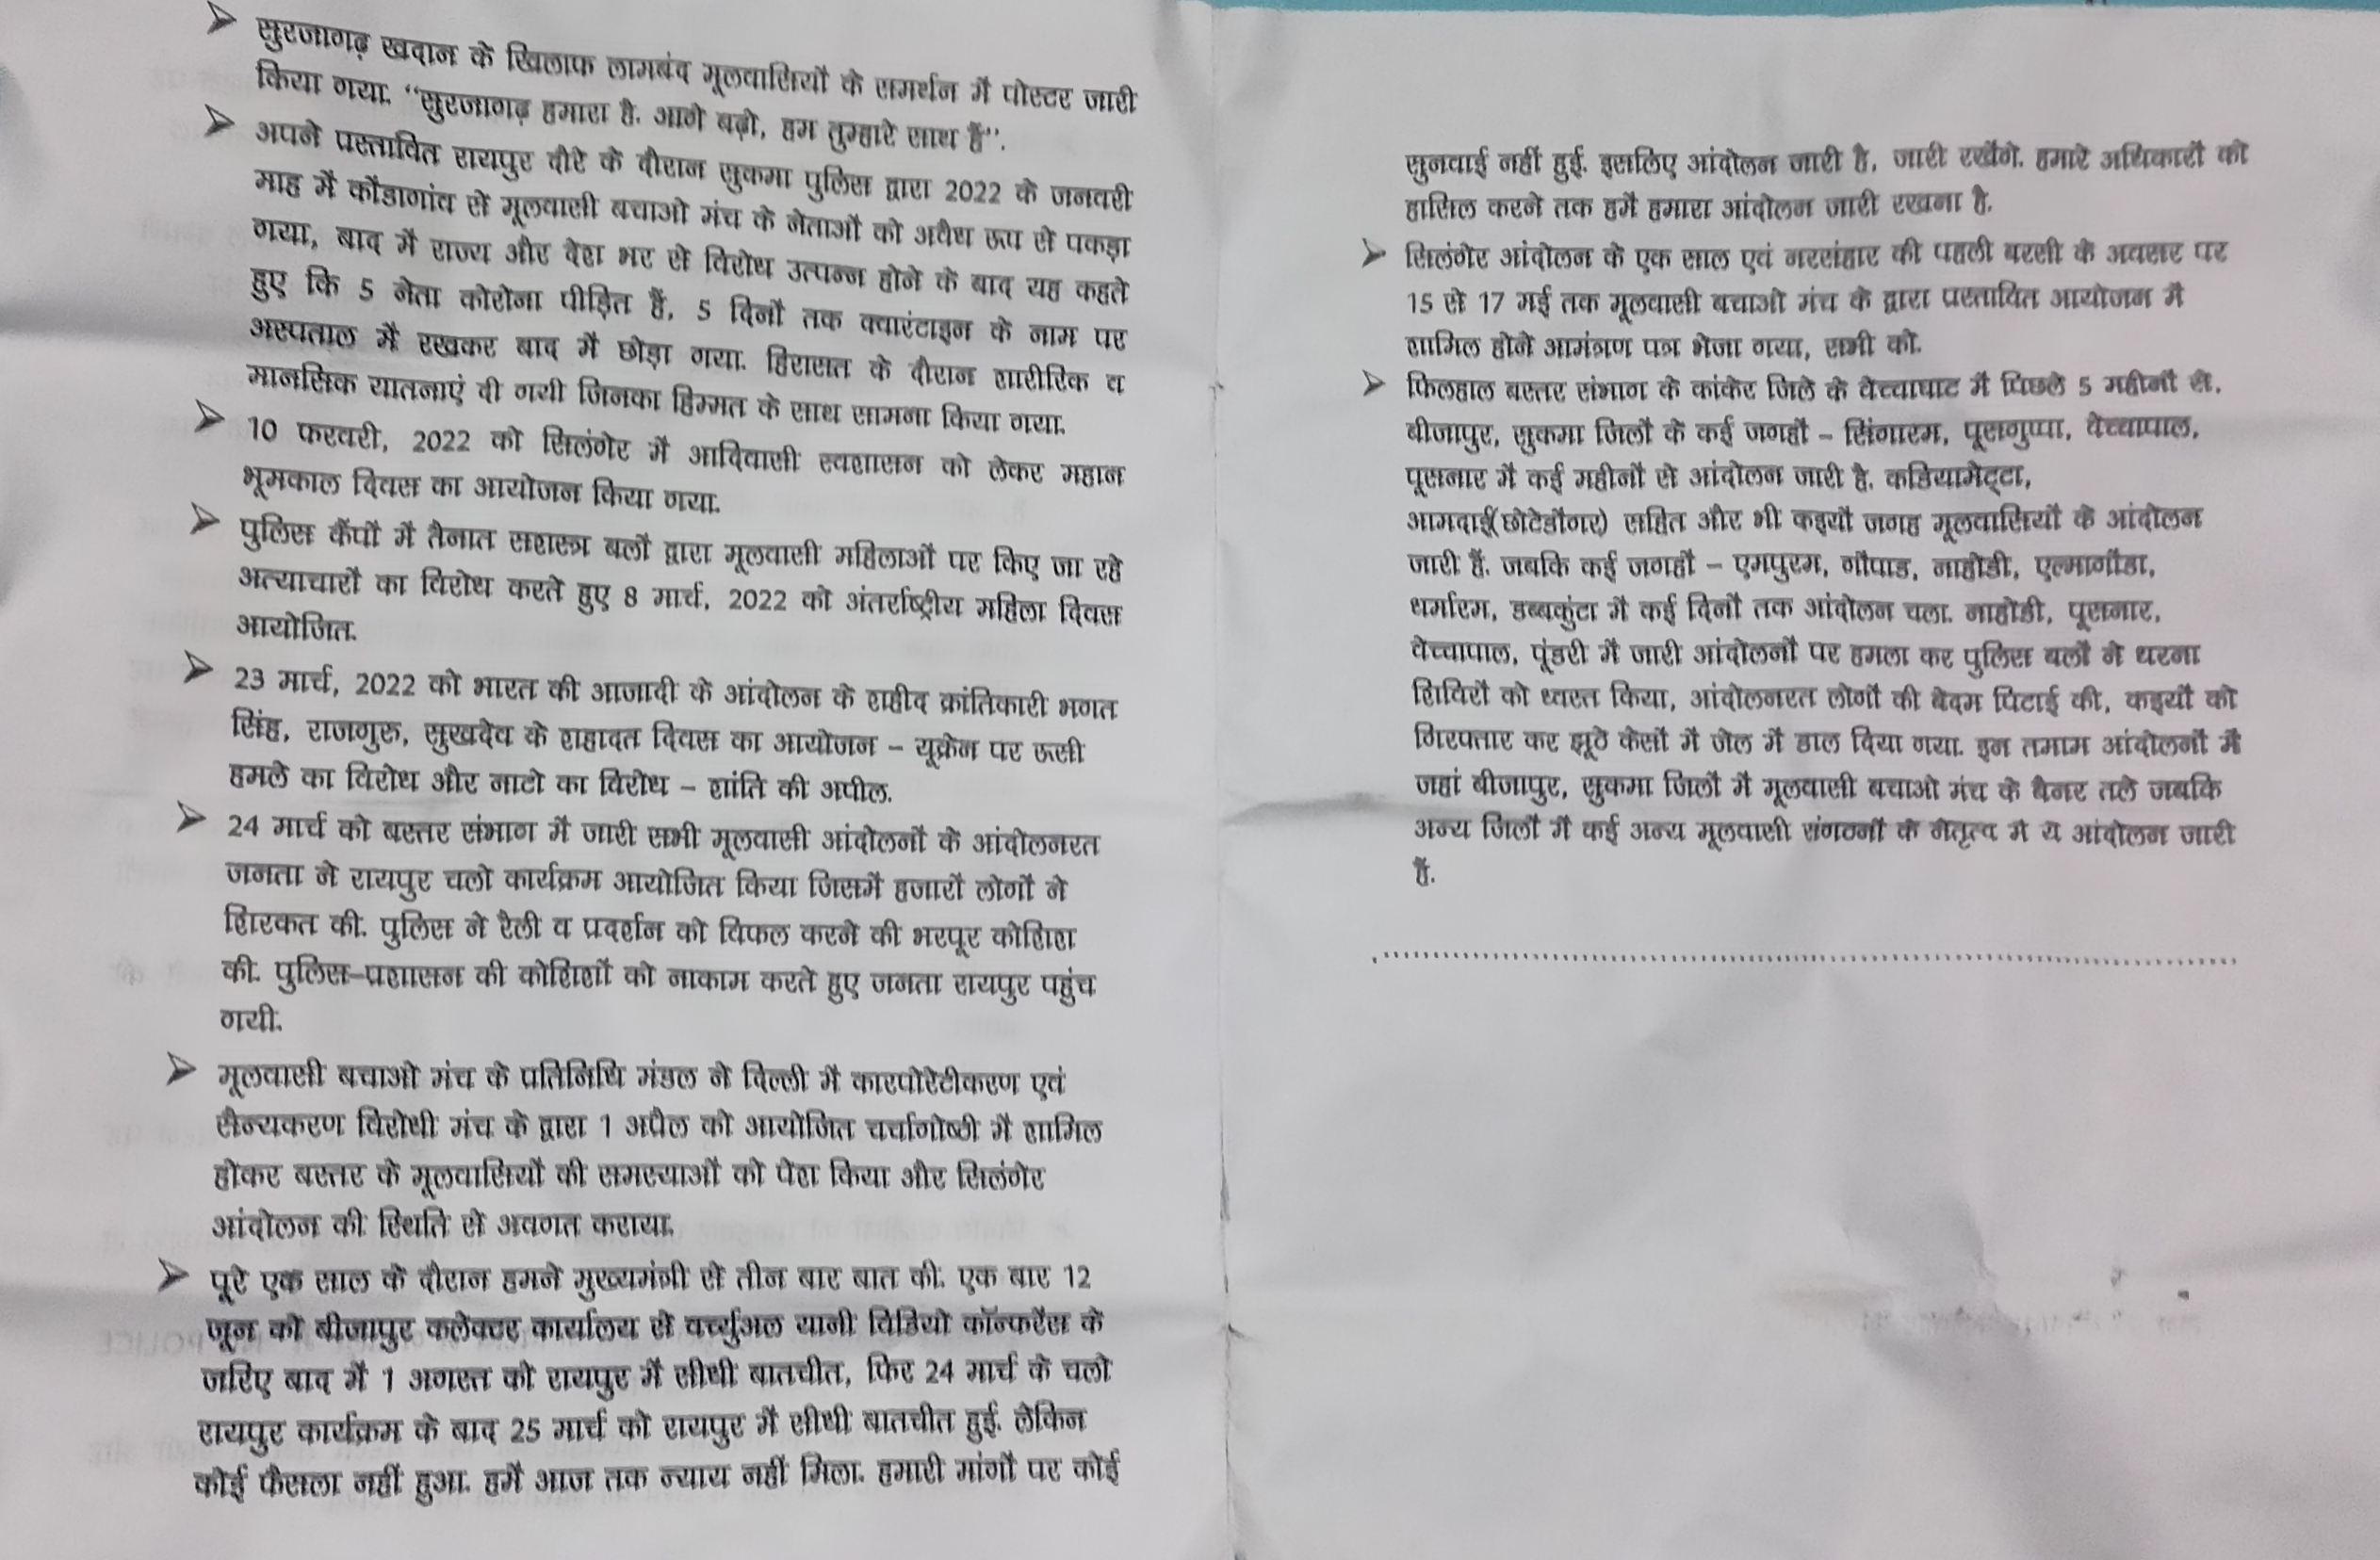 ➢ सुरजागढ़ खदान के खिलाफ लामबंद मूलवासियों के समर्थन में पोस्टर जारी
किया गया. “सुरजागढ़ हमारा है. आगे बढ़ो, हम तुम्हारे साथ हैं”.
➢ अपने प्रस्तावित रायपुर दौरे के दौरान सुकमा पुलिस द्वारा 2022 के जनवरी
माह में कोंडागांव से मूलवासी बचाओ मंच के नेताओं को अवैध रूप से पकड़ा
गया, बाद में राज्य और देश भर से विरोध उत्पन्न होने के बाद यह कहते
हुए कि 5 नेता कोरोना पीड़ित हैं, 5 दिनों तक क्वारंटाइन के नाम पर
अस्पताल में रखकर बाद में छोड़ा गया. हिरासत के दौरान शारीरिक व
मानसिक यातनाएं दी गयी जिनका हिम्मत के साथ सामना किया गया.
➢ 10 फरवरी, 2022 को सिलंगेर में आदिवासी स्वशासन को लेकर महान
भूमकाल दिवस का आयोजन किया गया.
➢ पुलिस कैंपों में तैनात सशस्त्र बलों द्वारा मूलवासी महिलाओं पर किए जा रहे
अत्याचारों का विरोध करते हुए 8 मार्च, 2022 को अंतर्राष्ट्रीय महिला दिवस
आयोजित.
➢ 23 मार्च, 2022 को भारत की आजादी के आंदोलन के शहीद क्रांतिकारी भगत
सिंह, राजगुरु, सुखदेव के शहादत दिवस का आयोजन – यूक्रेन पर रूसी
हमले का विरोध और नाटो का विरोध – शांति की अपील.
➢ 24 मार्च को बस्तर संभाग में जारी सभी मूलवासी आंदोलनों के आंदोलनरत
जनता ने रायपुर चलो कार्यक्रम आयोजित किया जिसमें हजारों लोगों ने
शिरकत की. पुलिस ने रैली व प्रदर्शन को विफल करने की भरपूर कोशिश
की. पुलिस–प्रशासन की कोशिशों को नाकाम करते हुए जनता रायपुर पहुंच
गयी.
➢ मूलवासी बचाओ मंच के प्रतिनिधि मंडल ने दिल्ली में कारपोरेटीकरण एवं
सैन्यकरण विरोधी मंच के द्वारा 1 अप्रैल को आयोजित चर्चागोष्ठी में शामिल
होकर बस्तर के मूलवासियों की समस्याओं को पेश किया और सिलंगेर
आंदोलन की स्थिति से अवगत कराया.
➢ पूरे एक साल के दौरान हमने मुख्यमंत्री से तीन बार बात की. एक बार 12
जून को बीजापुर कलेक्टर कार्यालय से वर्च्युअल यानी विडियो कॉन्फरेंस के
जरिए बाद में 1 अगस्त को रायपुर में सीधी बातचीत, फिर 24 मार्च के चलो
रायपुर कार्यक्रम के बाद 25 मार्च को रायपुर में सीधी बातचीत हुई. लेकिन
कोई फैसला नहीं हुआ. हमें आज तक न्याय नहीं मिला. हमारी मांगों पर कोई
सुनवाई नहीं हुई. इसलिए आंदोलन जारी है, जारी रखेंगे. हमारे अधिकारों को
हासिल करने तक हमें हमारा आंदोलन जारी रखना है.
➢ सिलंगेर आंदोलन के एक साल एवं नरसंहार की पहली बरसी के अवसर पर
15 से 17 मई तक मूलवासी बचाओ मंच के द्वारा प्रस्तावित आयोजन में
शामिल होने आमंत्रण पत्र भेजा गया, सभी को.
➢ फिलहाल बस्तर संभाग के कांकेर जिले के वेच्चाघाट में पिछले 5 महीनों से,
बीजापुर, सुकमा जिलों के कई जगहों – सिंगारम, पूसगुप्पा, वेच्चापाल,
पूसनार में कई महीनों से आंदोलन जारी है. कडियामेट्टा,
आमदाई(छोटेडोंगर) सहित और भी कइयों जगह मूलवासियों के आंदोलन
जारी हैं. जबकि कई जगहों – एमपुरम, गोंपाड, नाहोडी, एल्मागोंडा,
धर्मारम, डब्बकुंटा में कई दिनों तक आंदोलन चला. नाहोडी, पूसनार,
वेच्चापाल, पूंडरी में जारी आंदोलनों पर हमला कर पुलिस बलों ने धरना
शिविरों को ध्वस्त किया, आंदोलनरत लोगों की बेदम पिटाई की, कइयों को
गिरफ्तार कर झूठे केसों में जेल में डाल दिया गया. इन तमाम आंदोलनों में
जहां बीजापुर, सुकमा जिलों में मूलवासी बचाओ मंच के बैनर तले जबकि
अन्य जिलों में कई अन्य मूलवासी संगठनों के नेतृत्व में ये आंदोलन जारी
हैं.